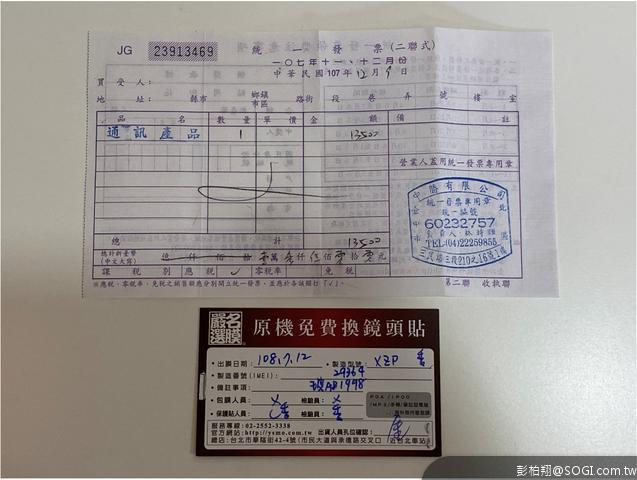 JG 23913469 統一發票(二聯式)
一〇七年十一、十二月份
中華民國107年12月9日
買受人:
地址: 縣市 鄉鎮市區 路街 段 巷 弄 號 樓 室
品名 數量 單價 金額 備註
通訊產品 1 13500
營業人蓋用統一發票專用章
有限公司
統一發票專用章
統一編號
60232757
TEL:(04)22259855
三民路三段210之16號1樓
總計 13500
總計新臺幣
(中文大寫)
課稅別 應稅 ✓ 零稅率 免稅
※應稅、零稅率、免稅之銷售額應分別開立統一發票,並應於各該欄打「✓」。
第二聯 收執聯
嚴選名膜
原機免費換鏡頭貼
•出膜日期: 108.7.12 •製造型號: XZP
•製造番號(IMEI) 24364
•備註事項: 1998
•包膜人員: 檢驗員:
•保護貼人員: 檢驗員:
PDA/IPOD
服務專線:02-2552-3338
官方網站:http://ysmo.com.tw 出貨人員孔位確認:
總店:台北市華陰街42-4號(市民大道與承德路交叉口 近台北車站)
彭柏翔@SOGI.com.tw